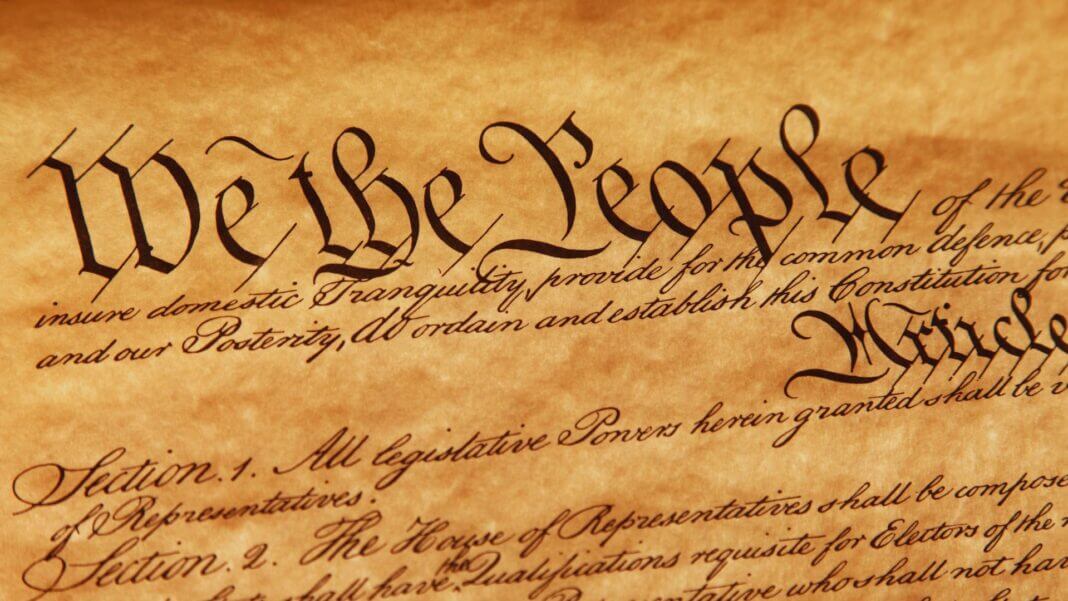 We the People of the
insure domestic Tranquility, provide for the common defence,
and our Posterity, do ordain and establish this Constitution for
Article
Section. 1. All legislative Powers herein granted shall be
of Representatives.
Section. 2. The House of Representatives shall be compose
shall have the Qualifications requisite for Electors of the
who shall not